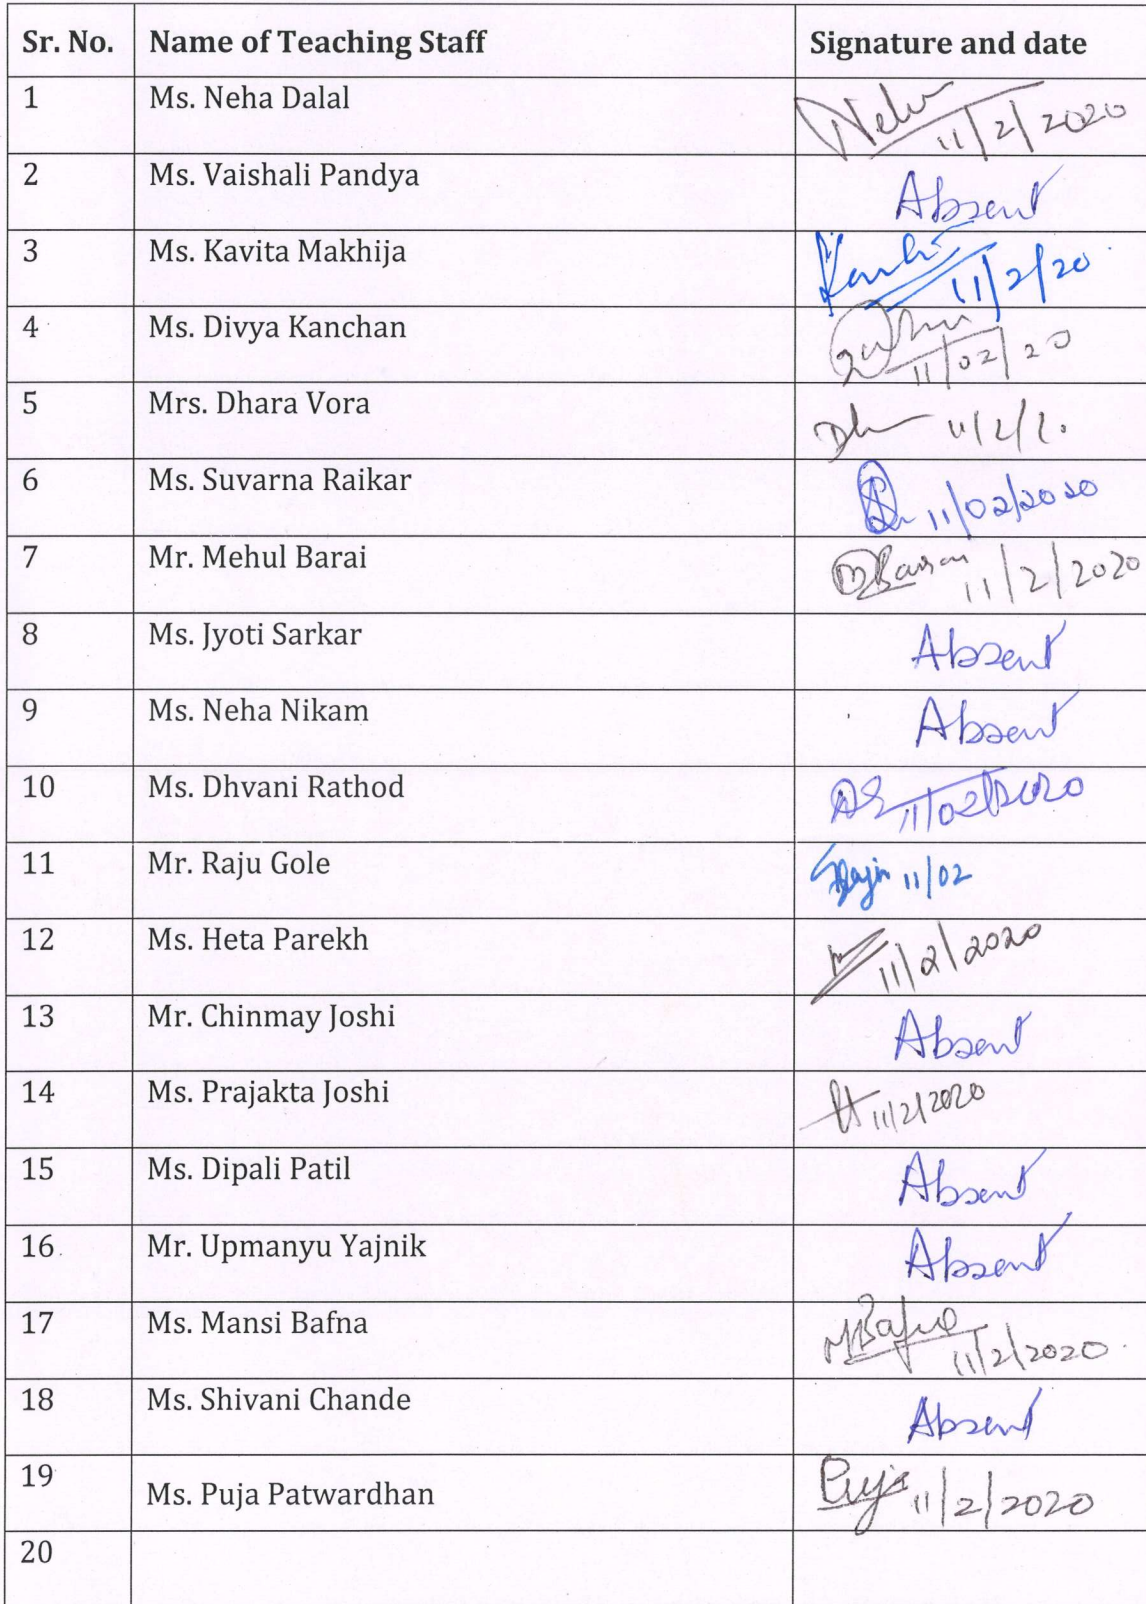 Sr. No. Name of Teaching Staff Signature and date
1 Ms. Neha Dalal Neha 11/2/2020
2 Ms. Vaishali Pandya Absent
3 Ms. Kavita Makhija 11/2/20
4 Ms. Divya Kanchan 11/02/20
5 Mrs. Dhara Vora
6 Ms. Suvarna Raikar 11/02/2020
7 Mr. Mehul Barai 11/2/2020
8 Ms. Jyoti Sarkar Absent
9 Ms. Neha Nikam Absent
10 Ms. Dhvani Rathod 11/02/2020
11 Mr. Raju Gole 11/02
12 Ms. Heta Parekh 11/2/2020
13 Mr. Chinmay Joshi Absent
14 Ms. Prajakta Joshi 11/2/2020
15 Ms. Dipali Patil Absent
16 Mr. Upmanyu Yajnik Absent
17 Ms. Mansi Bafna MBafna 11/2/2020
18 Ms. Shivani Chande Absent
19 Ms. Puja Patwardhan Puja 11/2/2020
20